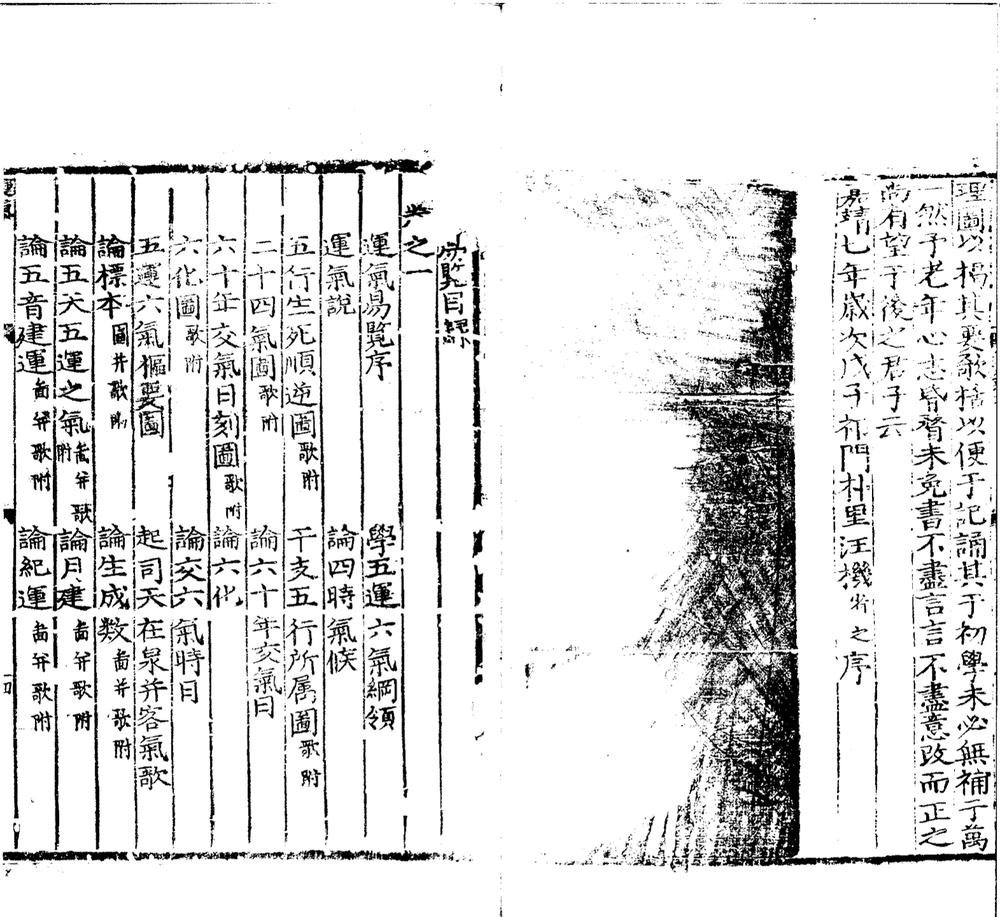 理圖以揭其要歌括以便于記誦其于初學未必無補于萬
一然予老年心志昏瞀未免書不盡言言不盡意改而正之
尚有望于後之君子云
嘉靖七年歲次戊子祁門朴里汪機省之序
易覽目錄
卷之一
運氣易覽序 學五運六氣綱領
運氣說 論四時氣候
五行生死順逆圖歌附 干支五行所属圖歌附
二十四氣圖歌附 論六十年交氣日
六十年交氣日刻圖歌附 論六化
六化圖歌附 論交六氣時日
五運六氣樞要圖 起司天在泉并客氣歌
論標本圖并歌附 論生成数啚并歌附
論五天五運之氣啚并歌附 論月建啚并歌附
論五音建運啚并歌附 論紀運啚并歌附